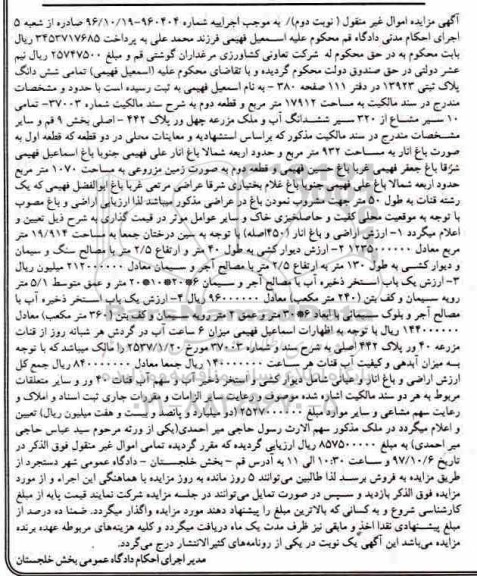 آگهی مزایده اموال غیر منقول ( نوبت دوم)/ به موجب اجراییه شماره ۹۶۰۴۰۴-۹۶/۱۰/۱۹ صادره از شعبه ۵
اجرای احکام مدنی دادگاه قم محکوم علیه اسمعیل فهیمی فرزند محمد علی به پرداخت ۳۴۵۳۷۱۷۶۸۵ ریال
بابت محکوم به در حق محکوم له شرکت تعاونی کشاورزی مرغداران گوشتی قم و مبلغ ۲۵۷۴۷۵۰۰ ریال نیم
عشر دولتی در حق صندوق دولت محکوم گردیده و با تقاضای محکوم علیه (اسمعیل فهیمی) تمامی شش دانگ
پلاک ثبتی ۱۳۹۲۳ در دفتر ۱۱۱ صفحه ۳۸۰ - به نام اسمعیل فهیمی به ثبت رسیده است با حدود و مشخصات
مندرج در سند مالکیت به مساحت ۱۷۹۱۲ متر مربع و قطعه دوم به شرح سند مالکیت شماره ۳۷۰۰۳- تمامی
۱۰ سیر مشاع از ۳۲۰ سیر ششدانگ آب و ملک مزرعه چهل ور پلاک ۴۴۲ - اصلی بخش ۹ قم و سایر
مشخصات مندرج در سند مالکیت مذکور که براساس استشهادیه و معاینات محلی در دو قطعه که قطعه اول به
صورت باغ انار به مساحت ۹۳۲ متر مربع و حدود اربعه شمالا باغ انار علی فهیمی جنوبا باغ اسماعیل فهیمی
شرقا باغ جعفر فهیمی غربا باغ حسین فهیمی و قطعه دوم به صورت زمین مزروعی به مساحت ۱۰۷۰ متر مربع
حدود اربعه شمالا باغ علی فهیمی جنوبا باغ غلام بختیاری شرقا عراضی مرتعی غربا باغ ابوالفضل فهیمی که یک
رشته قنات به طول ۵۰ متر جهت مشروب نمودن باغ در عراضی مذکور میباشد لذا ارزیابی اراضی و باغ مصوب
با توجه به موقعیت محلی کلیت و حاصلخیزی خاک و سایر عوامل موثر در قیمت گذاری به شرح ذیل تعیین و
اعلام میگردد ۱- ارزش اراضی و باغ انار (۴۵۰اصله) با توجه به سن درختان جمعا به مساحت ۱۹/۹۱۴ متر
مربع معادل ۱۲۳۵۰۰۰۰۰۰ ۲- ارزش دیوار کشی به طول ۴۰ متر و ارتفاع ۲/۵ متر با مصالح سنگ و سیمان
و دیوار کشی به طول ۱۳۰ متر به ارتفاع ۲/۵ متر با مصالح آجر و سیمان معادل ۲۱۲۰۰۰۰۰۰ میلیون ریال
۳- ارزش یک باب استخر ذخیره آب با مصالح آجر و سیمان ۶*۲۰*۱۰*۲۰ متر و عمق متوسط ۵/۱ متر
رویه سیمان و کف بتن (۲۴۰ متر مکعب) معادل ۹۶۰۰۰۰۰۰ ریال ۴- ارزش یک باب استخر ذخیره آب با
مصالح آجر و بلوک سیمانی با ابعاد ۶*۳۰ متر و عمق ۲ متر رویه سیمان و کف بتن (۳۶۰ متر مکعب) معادل
۱۴۴۰۰۰۰۰۰ ریال با توجه به اظهارات اسماعیل فهیمی میزان ۶ ساعت آب در گردش هر شبانه روز از قنات
مزرعه ۴۰ ور پلاک ۴۴۲ اصلی به شرح سند و شماره ۳۷۰۰۳ مورخ ۲۵۳۷/۱/۲۰ را مالک میباشد که با توجه
به میزان آبدهی و کیفیت آب قنات هر ساعت ۱۴۰۰۰۰۰۰۰ ریال جمعا معادل ۸۴۰۰۰۰۰۰۰ ریال جمع کل
ارزش اراضی و باغ انار و عیانی شامل دیوار کشی و استخر ذخیره آب و سهم آب قنات ۴۰ ور و سایر متعلقات
مربوط به هر دو سند مالکیت اشاره شده موصوف و رعایت سایر الزامات و مقررات جاری ثبت اسناد و املاک و
رعایت سهم مشاعی و سایر موارد مبلغ ۲۵۲۷۰۰۰۰۰۰ (دو میلیارد و پانصد و بیست و هفت میلیون ریال) تعیین
و اعلام میگردد در ملک مذکور سهم الارث رسول حاجی میر احمدی(یکی از ورثه مرحوم سید عباس حاجی
میر احمدی) به مبلغ ۸۵۷۵۰۰۰۰۰ ریال ارزیابی گردیده که مقرر گردیده تمامی اموال غیر منقول فوق الذکر در
تاریخ ۹۷/۱۰/۶ و ساعت ۱۰:۳۰ الی ۱۱ به آدرس قم - بخش خلجستان - دادگاه عمومی شهر دستجرد از
طریق مزایده به فروش برسد لذا طالبین می‌توانند ۵ روز مانده به روز مزایده با هماهنگی این اجراء و از مورد
مزایده فوق الذکر بازدید و سپس در صورت تمایل می‌توانند در جلسه مزایده شرکت نمایند قیمت پایه از مبلغ
کارشناسی شروع و به کسانی که بالاترین مبلغ را پیشنهاد دهند مورد مزایده واگذار میگردد. ضمنا ده درصد از
مبلغ پیشنهادی نقدا اخذ و مابقی نیز ظرف مدت یک ماه دریافت میگردد و کلیه هزینه‌های مربوطه عهده برنده
مزایده می‌باشد این آگهی یک نوبت در یکی از روزنامه‌های کثیرالانتشار درج می‌گردد.
مدیر اجرای احکام دادگاه عمومی بخش خلجستان